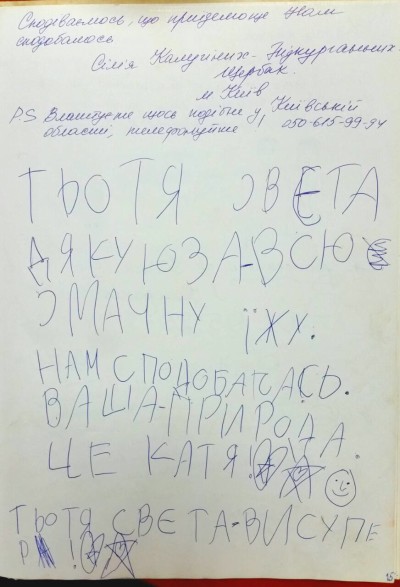 Сподіваємось, що приїдемо ще Нам
сподобалось
Сім'я Калугіних - Підкурганних
Щербак.
м Київ
PS Влаштуєте щось подібне у Київській
області, телефонуйте 050-615-99-94
ТЬОТЯ ЗВЕТА
ДЯКУЮ ЗА-ВСЮ
ЗМАЧНУ ЇЖУ.
НАМ СПОДОБАЛАСЬ.
ВАША-ПРИРОДА.
ЦЕ КАТЯ!
ТЬОТЯ СВЄТА-ВИ СУПЕ
Р !